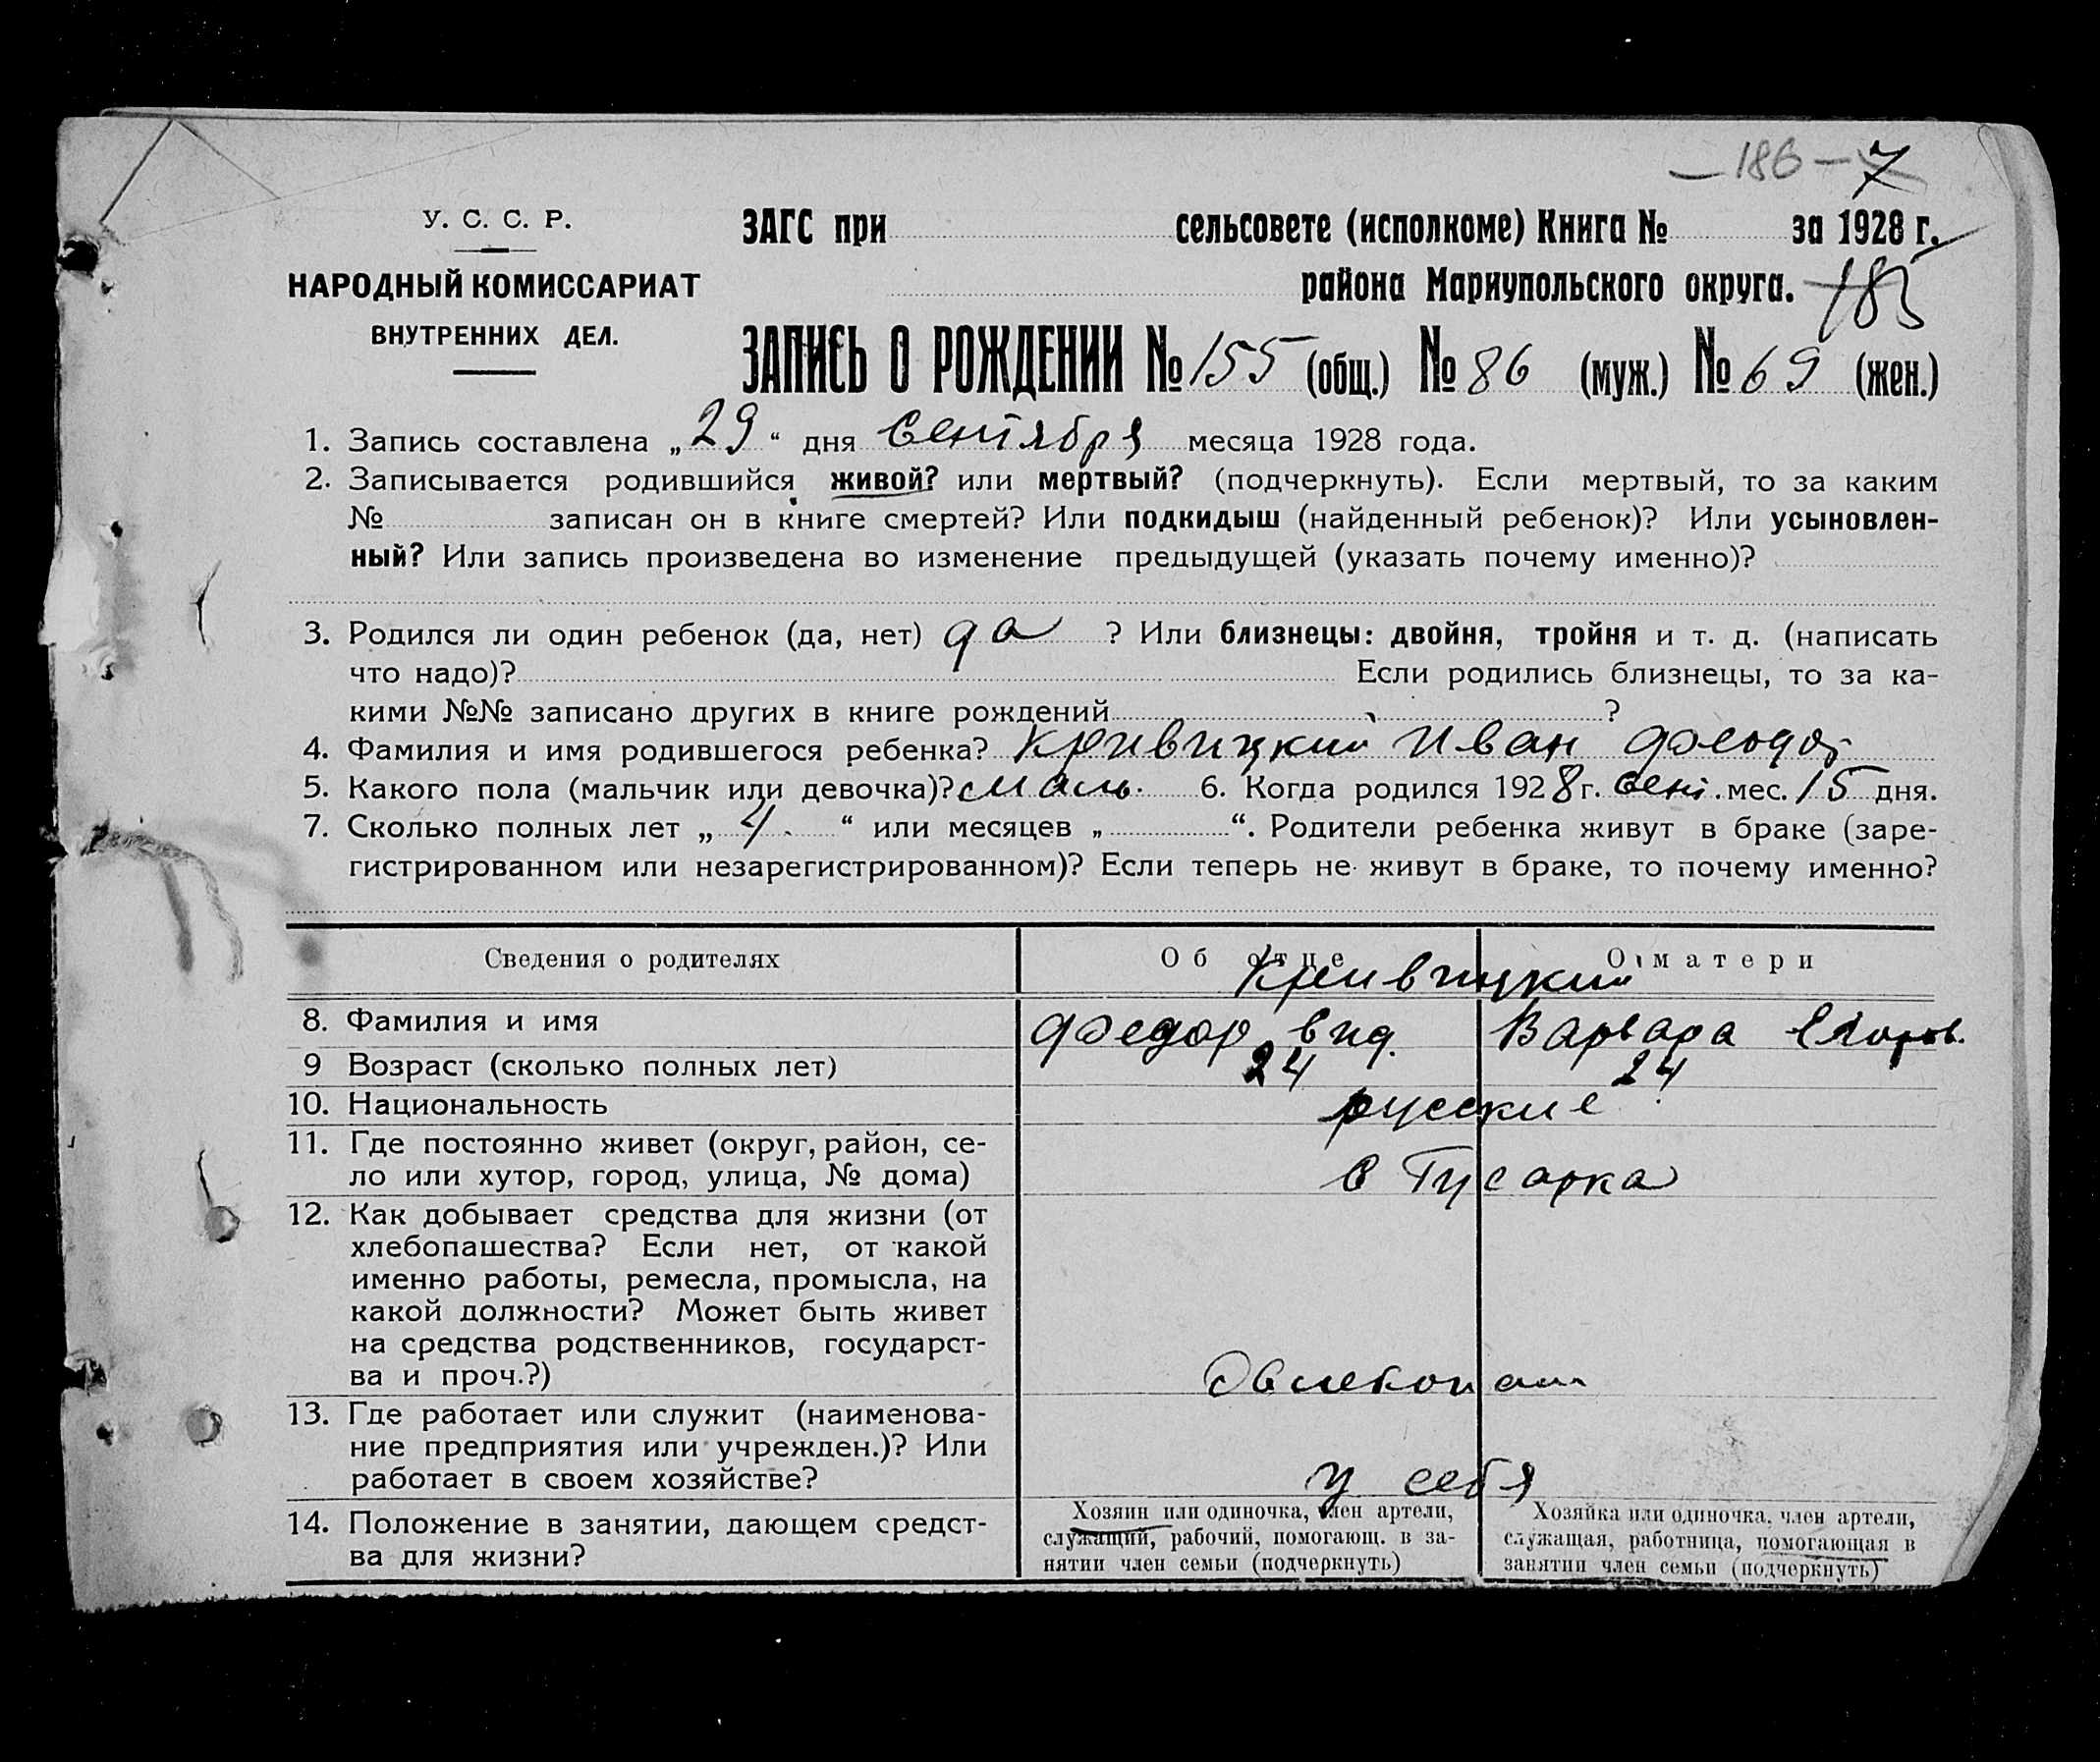 — 186 — 7
У. С. С. Р.
ЗАГС при сельсовете (исполкоме) Книга № за 1928 г.
НАРОДНЫЙ КОМИССАРИАТ
района Мариупольского округа. 185
ВНУТРЕННИХ ДЕЛ.
ЗАПИСЬ О РОЖДЕНИИ № 155 (общ.) № 86 (муж.) № 69 (жен.)
1. Запись составлена „29“ дня Сентября месяца 1928 года.
2. Записывается родившийся живой? или мертвый? (подчеркнуть). Если мертвый, то за каким
№ записан он в книге смертей? Или подкидыш (найденный ребенок)? Или усыновлен-
ный? Или запись произведена во изменение предыдущей (указать почему именно)?
3. Родился ли один ребенок (да, нет) да ? Или близнецы: двойня, тройня и т. д. (написать
что надо)? Если родились близнецы, то за ка-
кими №№ записано других в книге рождений ?
4. Фамилия и имя родившегося ребенка? Кривицкий Иван
5. Какого пола (мальчик или девочка)? маль. 6. Когда родился 1928 г. сент. мес. 15 дня.
7. Сколько полных лет „ 4 “ или месяцев „ “. Родители ребенка живут в браке (заре-
гистрированном или незарегистрированном)? Если теперь не живут в браке, то почему именно?
Сведения о родителях
Об отце
О матери
Кривицкий
8. Фамилия и имя
Федор
Варвара
9 Возраст (сколько полных лет)
24
24
10. Национальность
русские
11. Где постоянно живет (округ, район, се-
ло или хутор, город, улица, № дома)
с Гусарка
12. Как добывает средства для жизни (от
хлебопашества? Если нет, от какой
именно работы, ремесла, промысла, на
какой должности? Может быть живет
на средства родственников, государст-
ва и проч.?)
13. Где работает или служит (наименова-
ние предприятия или учрежден.)? Или
работает в своем хозяйстве?
у себя
14. Положение в занятии, дающем средст-
ва для жизни?
Хозяин или одиночка, член артели,
служащий, рабочий, помогающ. в за-
нятии член семьи (подчеркнуть)
Хозяйка или одиночка, член артели,
служащая, работница, помогающая в
занятии член семьи (подчеркнуть)